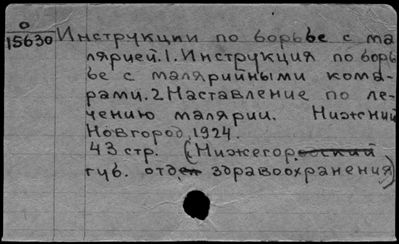 О
15630
Инструкции по борьбе с ма
лярией.1.Инструкция по борь
бе с малярийными кома-
рами.2.Наставление по ле-
чению малярии. Нижний
Новгород, 1924.
43 стр. (Нижегородский
губ. отдел здравоохранения)